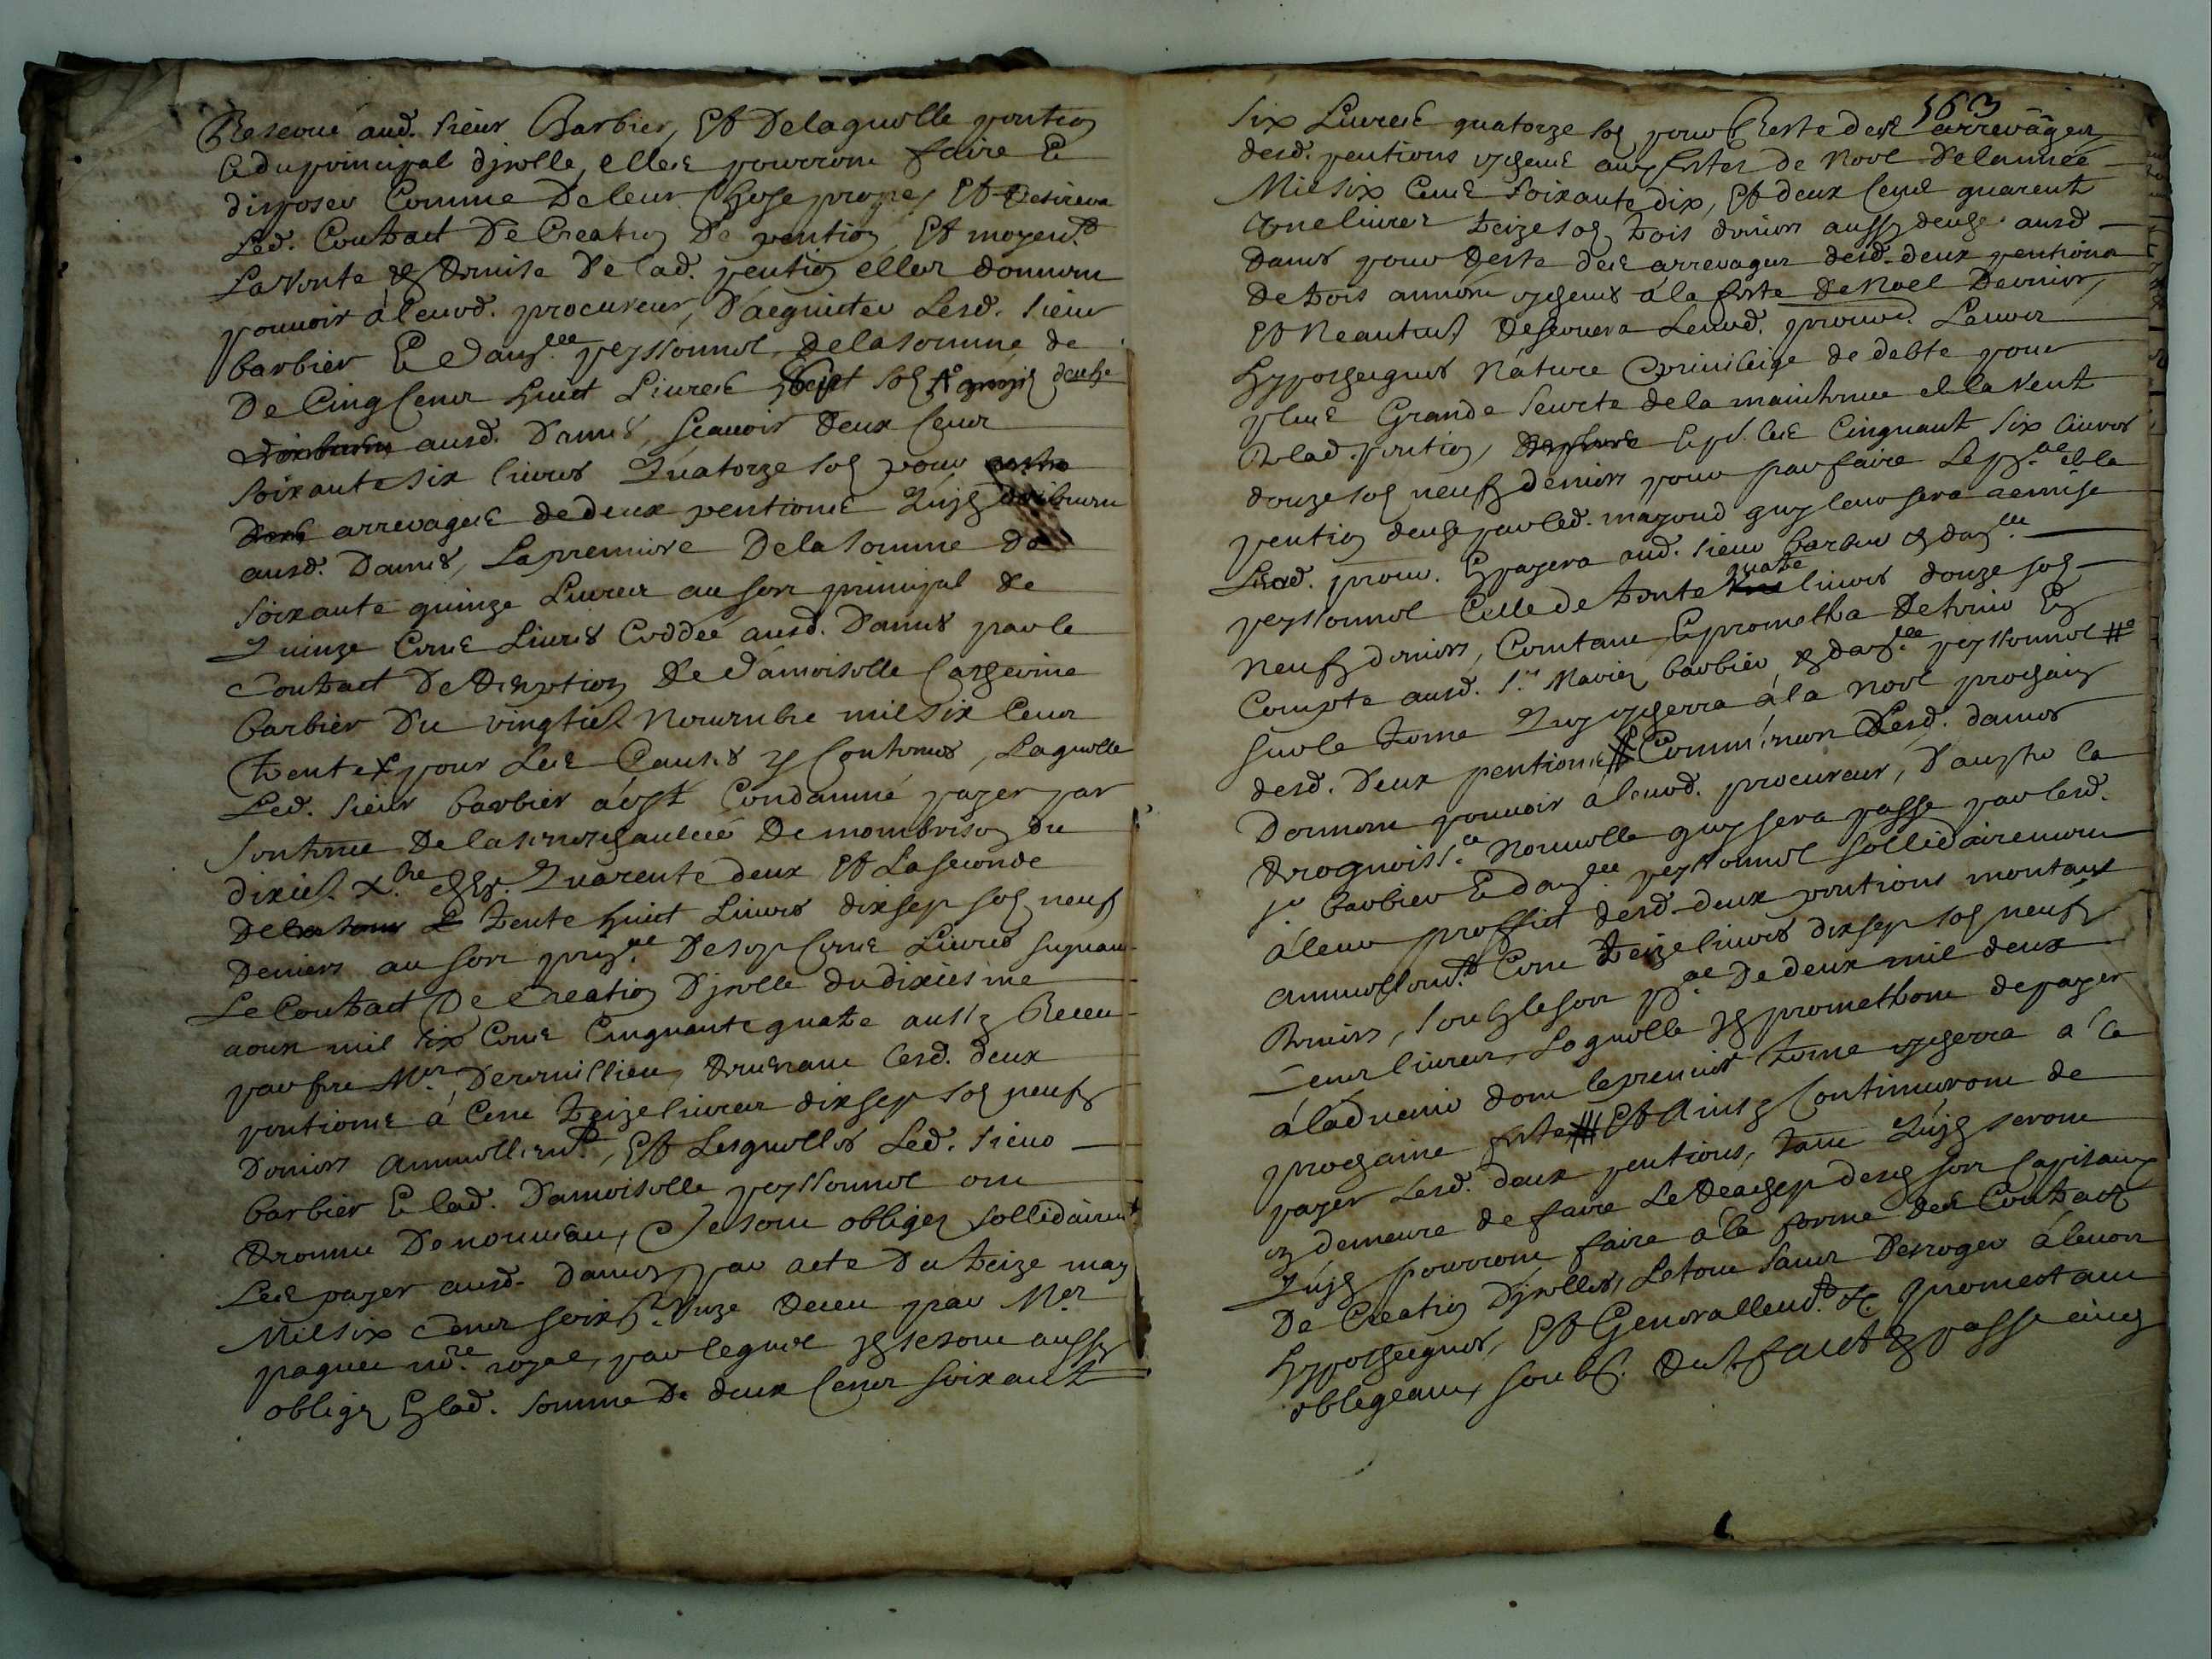 Reservé aud. sieur Barbier, Et De laquelle pention
Et du principal d'jcelle, elles pourront faire Et
disposer Comme De leur Chose propre, Et
Led. Contract De Creation De pention, Et moyent.
La vente & Remise De lad. pention elles donnent
pouvoir à leurd. procureur, D'acquitter Lesd. sieur
barbier Et Dau.lle peyssonnel, De la somme de
De Cinq Cens huict Livres sept sols deuhe
ausd. Dames, scavoir Deux Cens
soixante six livres Quatorze sols pour
arrerages de deux pentions Quijlz
ausd. Dames, La premiere De la somme de
soixante quinze Livres au sort principal de
Quinze Cens Livres Ceddée ausd. Dames par le
Contract De Redemption De Damoiselle Catherine
barbier Du vingties. Novembre mil six Cens
trente pour Les Causes y Contenues, Laquelle
Led. sieur barbier à esté Condamné payer par
sentence De la senechaulcée De Montbrison du
dixies. x.bre Quarente deux Et La seconde
De trente huict Livres dixsep sols neuf
Deniers au sort prin.al De sept Cens Livres suyvant
Le Contract De Creation D'jcelle du dixiesme
aoust mil six Cens Cinquante quatre aussy Receu
par feu Me. Deromillieu, Revenant lesd. deux
pentions à Cent treize livres dixsep sols neuf
Deniers Annuellem.t, Et Lesquelles Led. sieur
barbier Et lad. Damoiselle peyssonnel ont
Reconnu De nouveau, Et se sont obligez sollidairem.t
Les payer ausd. Dames, par acte Du treize may
Mil six Cens soix.te Unze Receu par Me.
paquet no.re royal, par lequel jlz se sont aussy
obligez Et lad. somme De deux Cens soixante
563
six Livres quatorze sols pour Reste des arrerages
desd. pentions escheus aux festes de Noel De l'année
Mil six Cens soixante dix, Et deux Cens quarente
Une livres treize sols trois deniers aussy deuhs ausd.
Dames pour Reste des arrerages desd. deux pentions
De trois années escheues à la feste De Noel Dernier,
Et Neautm.t Reservera Leurd. procur. Leurs
hypotheques Nature Et privileige de debte pour
plus Grande seurté de la maintenue de la vente
De lad. pention, Cinquante six livres
douze sols neuf deniers pour parfaire Le p.al de la
pention deuhe par led. mayoud quy leur sera remise
Leurd. procur. payera aud. sieur barbier & Da.lle
peyssonnel Celle de trente quatre livres douze sols
Neuf deniers, Comtant, Et promettra De tenir En
Compte ausd. s.rs Marien barbier & Da.lle peyssonnel
sur le terme Quy escherra à la Noel prochain
desd. Deux pentions Comm' aussy Lesd. dames
Donnent pouvoir à leurd. procureur, D'accepter la
Recognoiss.ce Nouvelle quy sera passé par lesd.
s.r barbier Et Da.lle peyssonnel sollidairement
à leur proffict desd. deux pentions montant
annuellem.t Cent treize livres dixsep sols neuf
Deniers, soubz le sort p.al De deux mil deux
Cens livres, Laquelle jlz promettront de payer
à l'advenir dont le premier terme escherra à la
prochaine feste Et Ainsy Continueront de
payer Lesd. deux pentions, tant Qu'jlz seront
en demeure de faire Le Rachept des sort Capitaux
Qu'jlz pourront faire à la forme des Contractz
De Creation D'jcelles, Le tout sans Desroger à leurs
hypotheques, Et Generallem.t &c. promettant
obligeant, soub. Renf. faict & passé ainsy